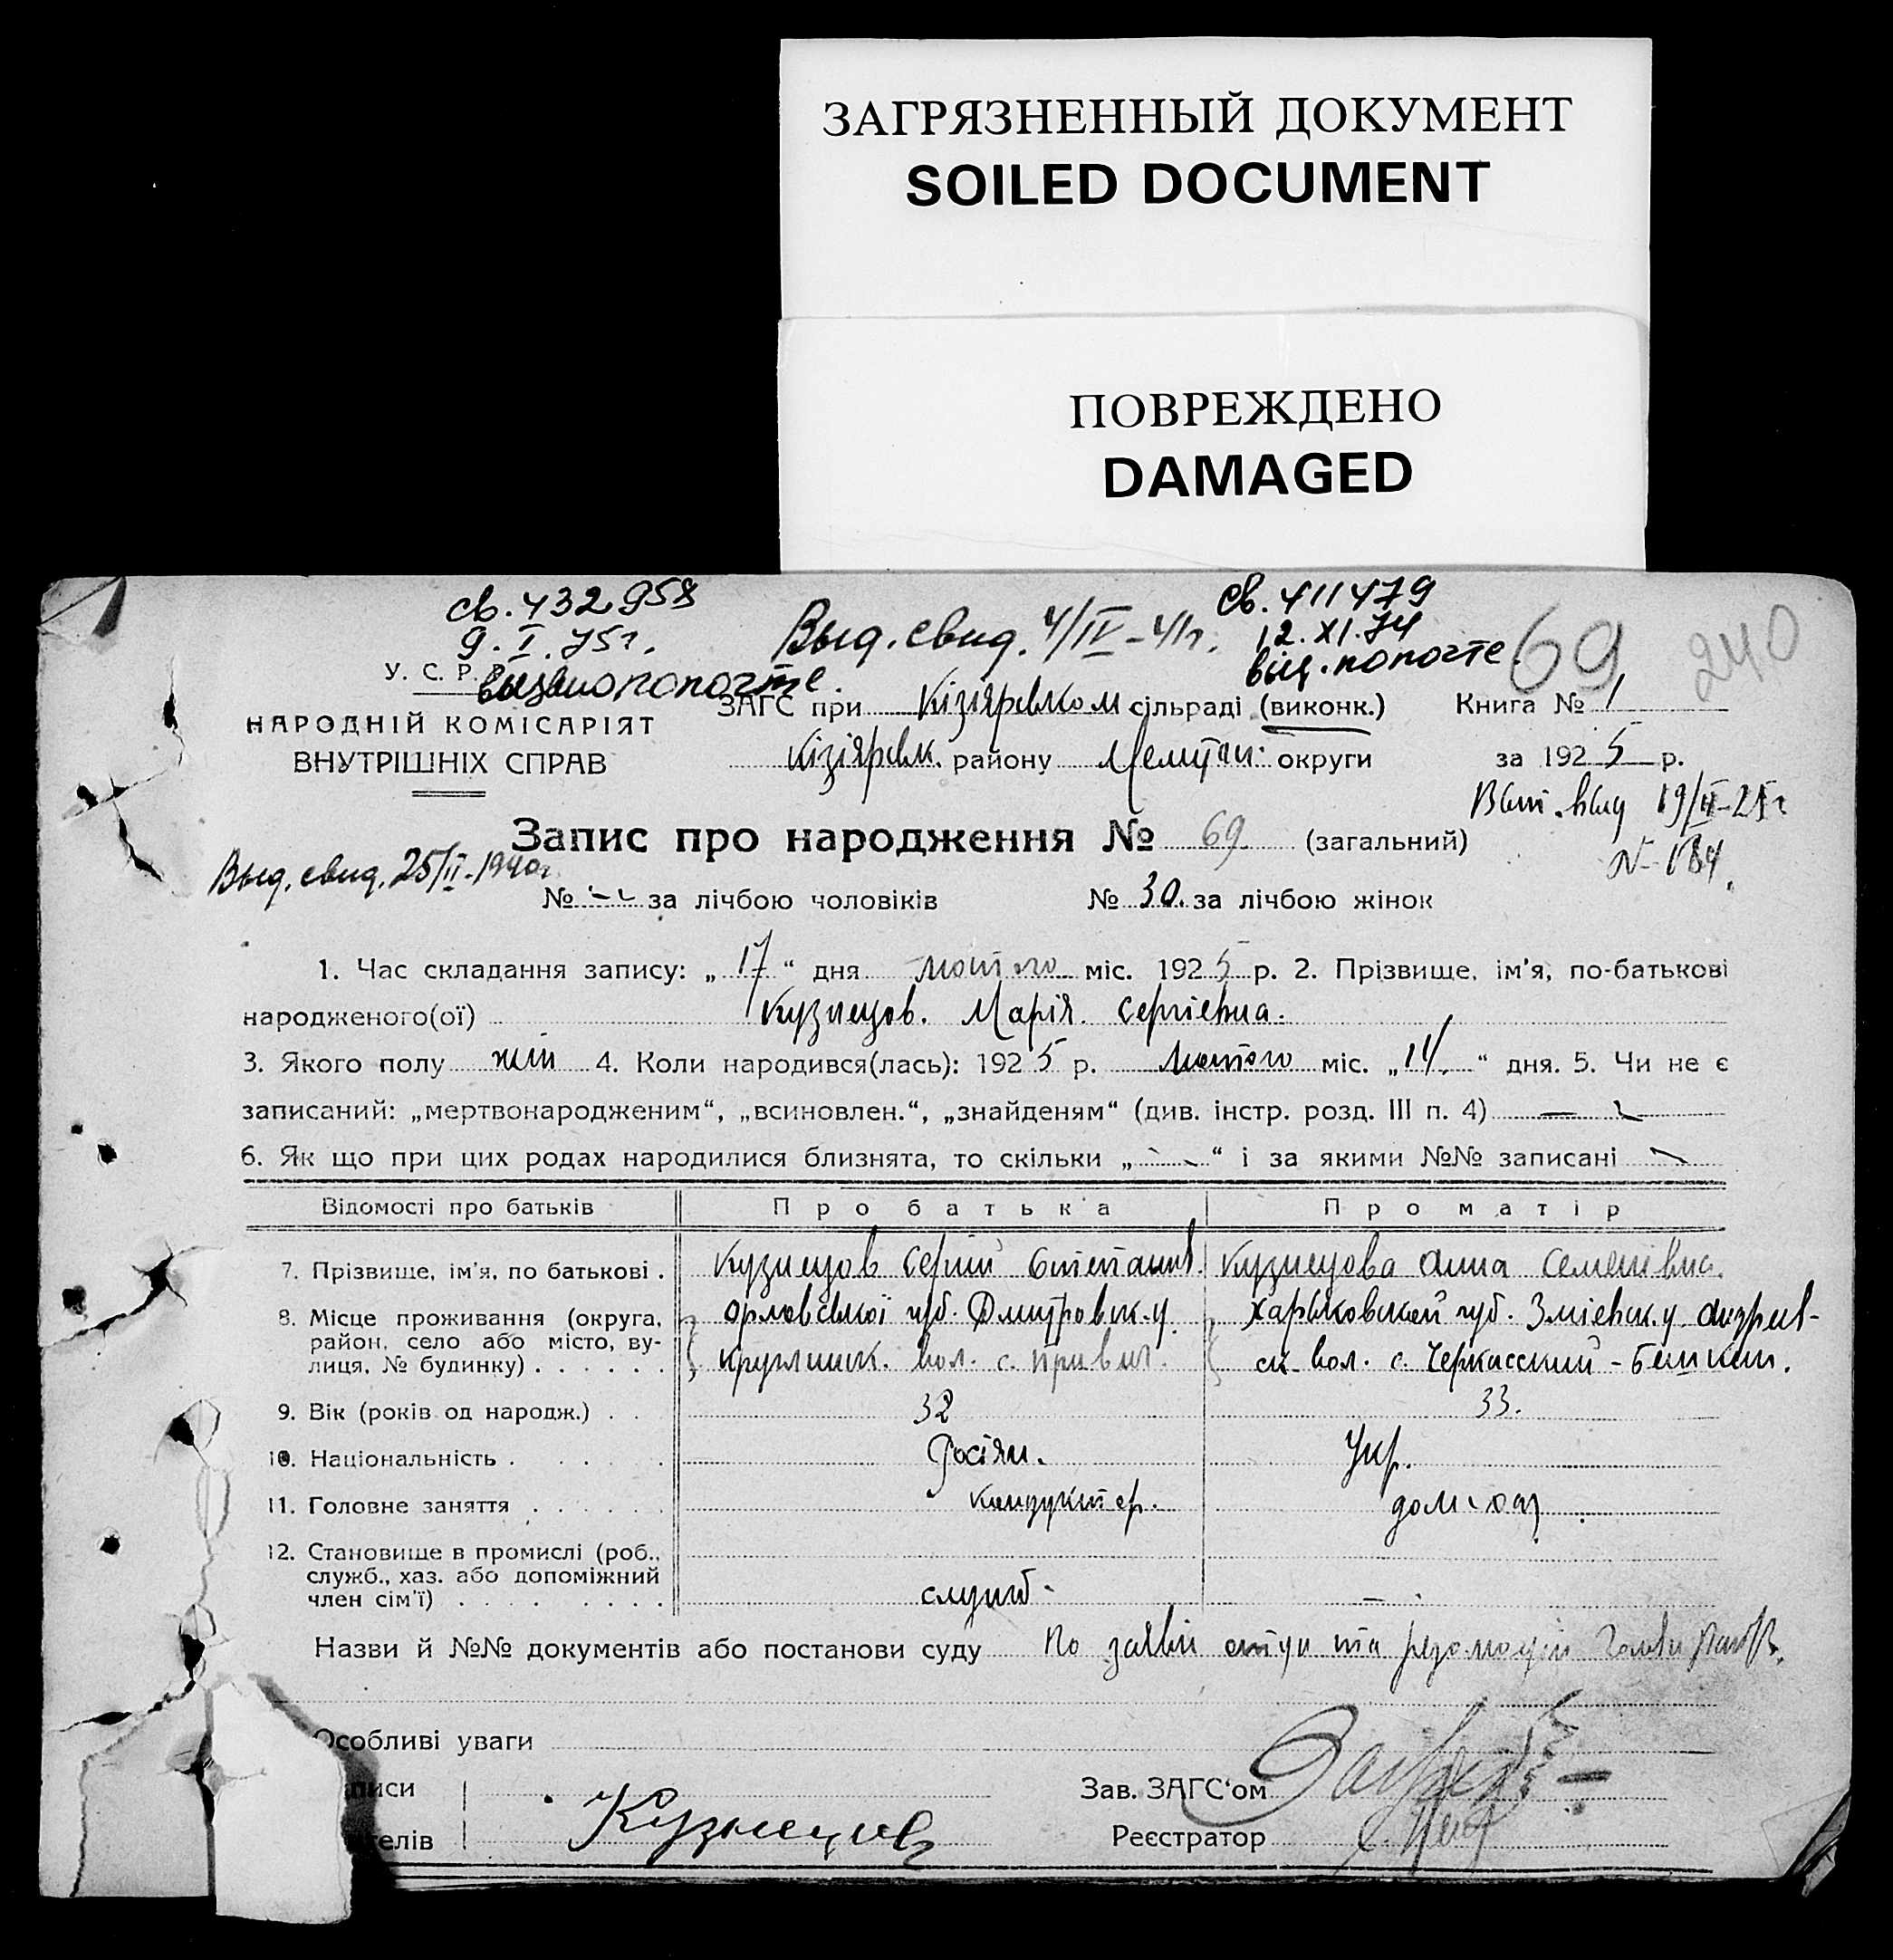 ЗАГРЯЗНЕННЫЙ ДОКУМЕНТ
SOILED DOCUMENT
ПОВРЕЖДЕНО
DAMAGED
св. 432958
9.I.75г.
Выд. свид. 4/IV-41г.
св. 411479
12.XI.74
выд. по почте.
69
240
У. С. Р. Р.
по почте.
НАРОДНІЙ КОМІСАРІЯТ
ВНУТРІШНІХ СПРАВ
ЗАГС при Кізіярвком сільраді (виконк.) Книга № 1
Кізіярвк. району Меліт. округи за 1925 р.
19/II-25г
№ 184.
Запис про народження № 69 (загальний)
Выд. свид. 25/II-1940г.
№ -- за лічбою чоловіків № 30. за лічбою жінок
1. Час складання запису: „17“ дня лютого міс. 1925 р. 2. Прізвище, ім'я, по-батькові
народженого(ої) Кузнецов. Марія. Сергіевна.
3. Якого полу жін 4. Коли народився(лась): 1925 р. лютого міс. „14.“ дня. 5. Чи не є
записаний: „мертвонародженим“, „всиновлен.“, „знайденям“ (див. інстр. розд. III п. 4) —
6. Як що при цих родах народилися близнята, то скільки „--“ і за якими №№ записані —
Відомості про батьків Про батька Про матір
7. Прізвище, ім'я, по батькові . Кузнецов Сергій Степанов. Кузнецова Анна Семенівна.
8. Місце проживання (округа, Орловської губ. Дмитровск. у. Харьковской губ. Зміевск. у. Андреев-
район, село або місто, ву-
лиця, № будинку) . . . . . . вол. с. ск. вол. с. Черкасский-Бишкин.
9. Вік (років од народж.) . . 32 33.
10. Національність . . . . . Росіян. Укр.
11. Головне заняття . . . . . . Кондуктер. домгосп.
12. Становище в промислі (роб.,
служб., хаз. або допоміжний
член сім'ї) . . . . . . . . служб. —
Назви й №№ документів або постанови суду По заяві отця та резолюціи
Особливі уваги
писи Зав. ЗАГС'ом
телів Кузнецов Реєстратор